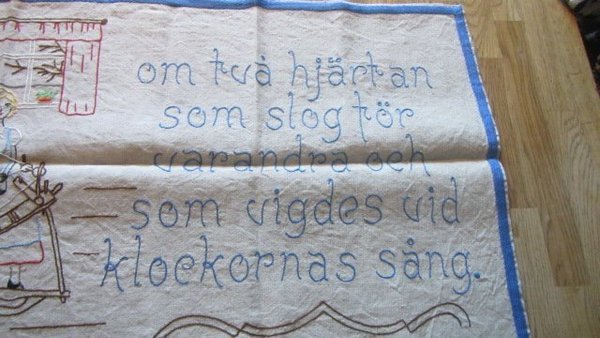 om två hjärtan
som slog för
varandra och
som vigdes vid
klockornas sång.